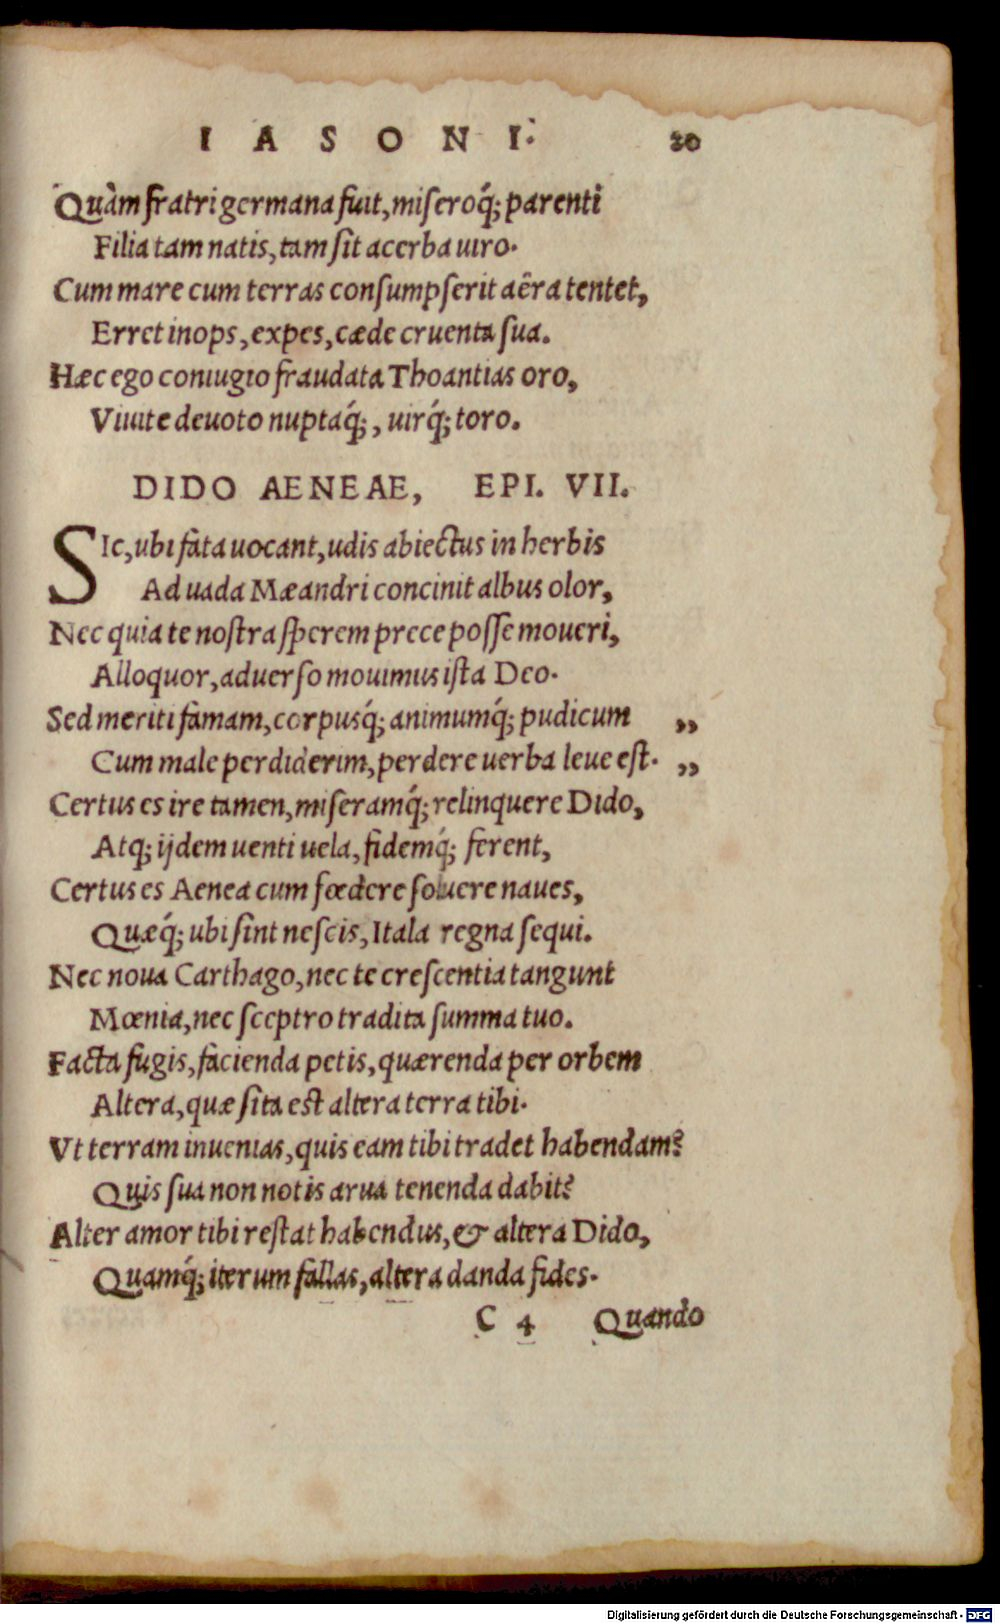 IASONI. 20
Quàm fratri germana fuit, miseroq́; parenti
Filia tam natis, tam sit acerba uiro.
Cum mare cum terras consumpserit aëra tentet,
Erret inops, expes, cæde cruenta sua.
Hæc ego coniugio fraudata Thoantias oro,
Viuite deuoto nuptaq́;, uirq́; toro.
DIDO AENEAE, EPI. VII.
SIc, ubi fata uocant, udis abiectus in herbis
Ad uada Mæandri concinit albus olor,
Nec quia te nostra sperem prece posse moueri,
Alloquor, aduerso mouimus ista Deo.
Sed meriti famam, corpusq́; animumq́; pudicum ”
Cum male perdiderim, perdere uerba leue est. ”
Certus es ire tamen, miseramq́; relinquere Dido,
Atq; ijdem uenti uela, fidemq́; ferent,
Certus es Aenea cum fœdere soluere naues,
Quæq́; ubi sint nescis, Itala regna sequi.
Nec noua Carthago, nec te crescentia tangunt
Mœnia, nec sceptro tradita summa tuo.
Facta fugis, facienda petis, quærenda per orbem
Altera, quæsita est altera terra tibi.
Vt terram inuenias, quis eam tibi tradet habendam?
Quis sua non notis arua tenenda dabit?
Alter amor tibi restat habendus, & altera Dido,
Quamq́; iterum fallas, altera danda fides.
C 4 Quando
Digitalisierung gefördert durch die Deutsche Forschungsgemeinschaft - DFG